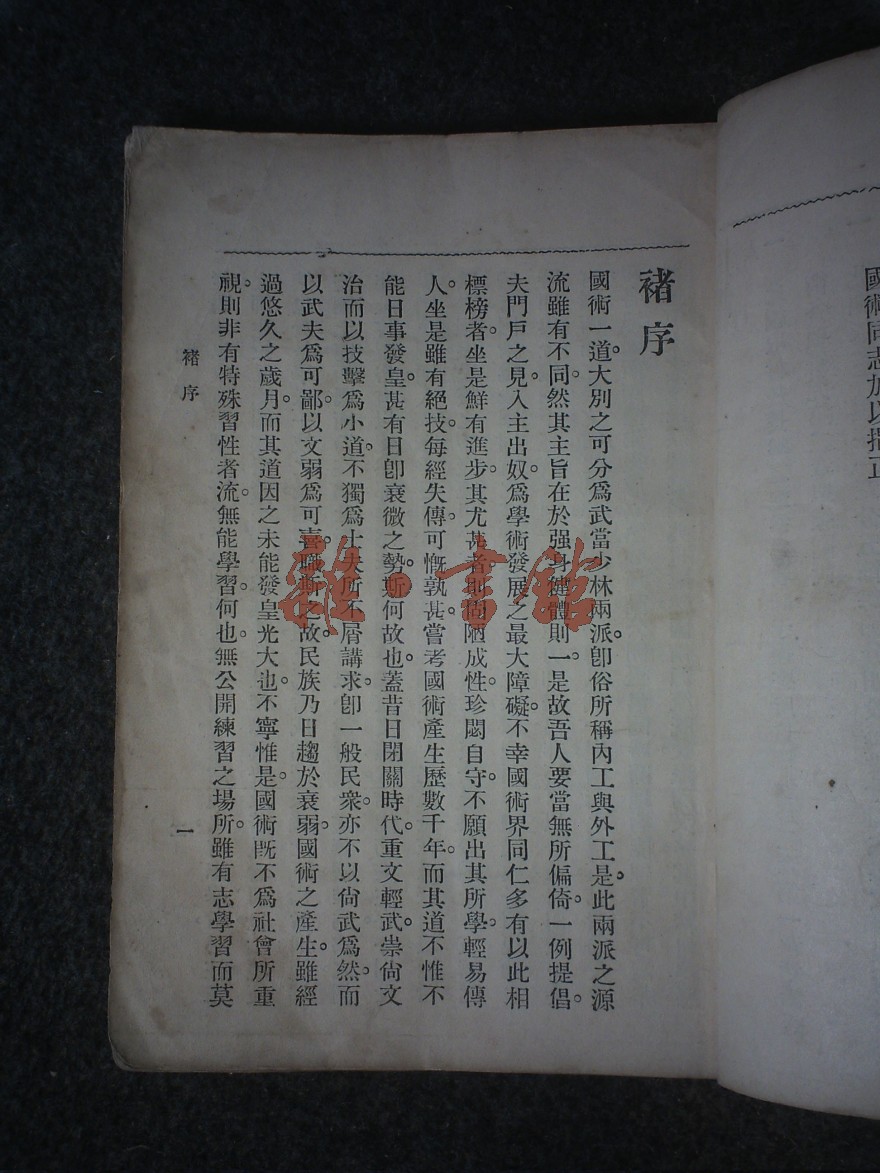 國術同志加以指正
褚序
國術一道。大別之可分爲武當少林兩派。卽俗所稱內工與外工是。此兩派之源
流雖有不同。然其主旨在於强身健體則一。是故吾人要當無所偏倚。一例提倡。
夫門戶之見。入主出奴。爲學術發展之最大障礙。不幸國術界同仁多有以此相
標榜者。坐是鮮有進步。其尤甚者。則固陋成性。珍閟自守。不願出其所學。輕易傳
人。坐是雖有絕技。每經失傳。可慨孰甚。嘗考國術產生。歷數千年。而其道不惟不
能日事發皇。甚有日卽衰微之勢。斯何故也。蓋昔日閉關時代。重文輕武。崇尙文
治而以技擊爲小道。不獨爲士夫所不屑講求。卽一般民衆。亦不以尙武爲然。而
以武夫爲可鄙。以文弱爲可喜。職斯之故。民族乃日趨於衰弱。國術之產生。雖經
過悠久之歲月。而其道因之未能發皇光大也。不寧惟是。國術旣不爲社會所重
視。則非有特殊習性者流。無能學習。何也。無公開練習之場所。雖有志學習而莫
褚序
一
雜·書館